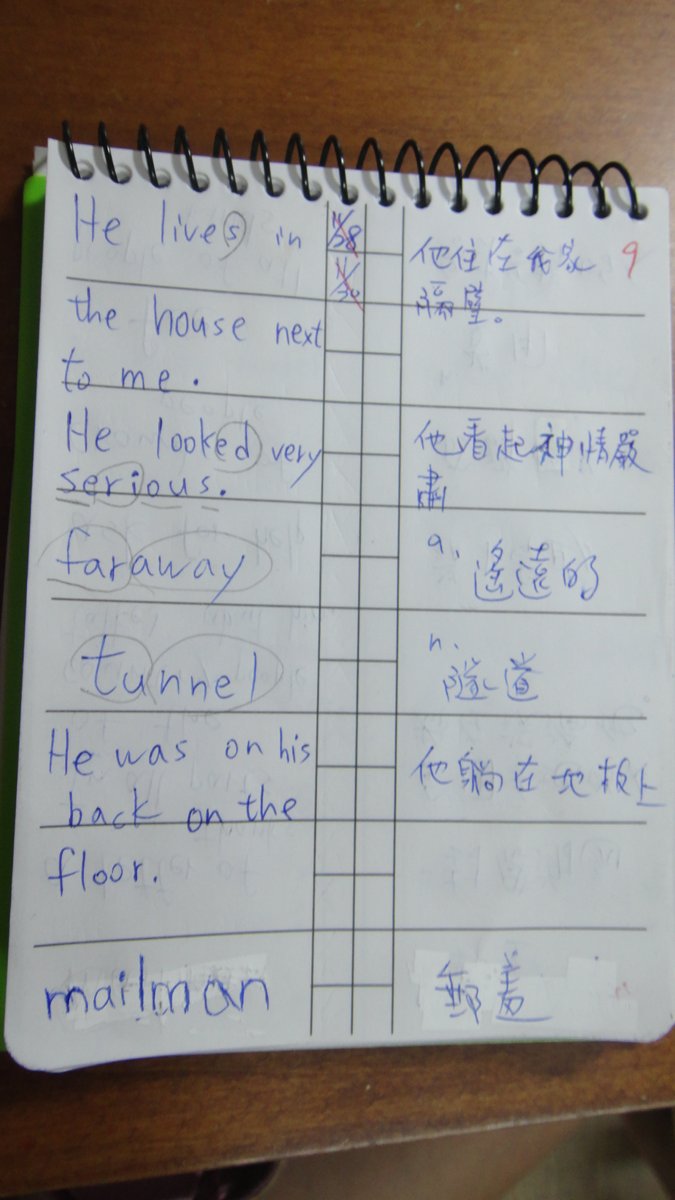 He lives in
11/28
他住在我家
9
11/30
隔壁。
the house next
to me.
He looked very
他看起神情嚴
serious.
肅
faraway
a.
遙遠的
tunnel
n.
隧道
He was on his
他躺在地板上
back on the
floor.
mailman
郵差